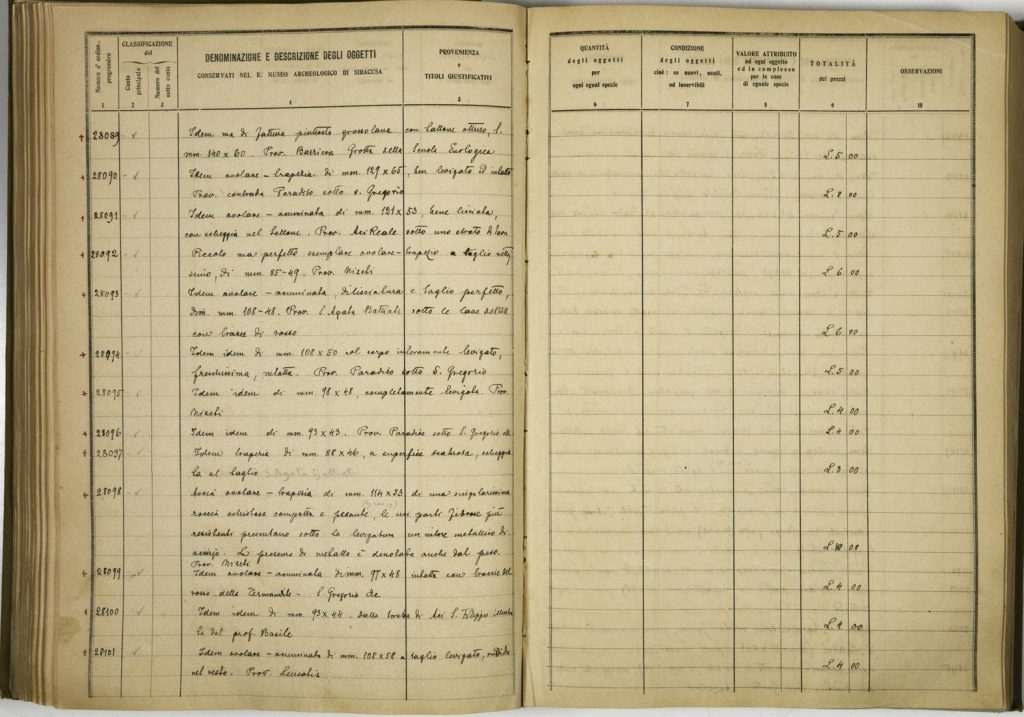 Numero d'ordine progressivo
CLASSIFICAZIONE
del
Conto principale
Numero del sotto conto
DENOMINAZIONE E DESCRIZIONE DEGLI OGGETTI
CONSERVATI NEL R. MUSEO ARCHEOLOGICO DI SIRACUSA
PROVENIENZA
e
TITOLI GIUSTIFICATIVI
QUANTITÀ
degli oggetti
per
ogni eguni specie
CONDIZIONE
degli oggetti
cioè: se nuovi, usati,
od inservibili
VALORE ATTRIBUITO
ad ogni oggetto
ed in complesso
per le cose
di eguale specie
TOTALITÀ
dei prezzi
OSSERVAZIONI
1 2 3 4 5 6 7 8 9 10
28089 Idem ma di fattura piuttosto grossolana con tallone ottuso, l.
mm. 140 x 60. Prov. Barriera Grotta della Scuola Enologica L. 5 00
28090 Idem ovolare - trapezia di mm. 129 x 65, ben levigato ed intatto
Prov. contrada Paradiso sotto S. Gregorio L. 8 00
28091 Idem ovolare - acuminata di mm. 121 x 53, bene lisciata,
con scheggia nel tallone. Prov. Aci Reale sotto uno strato di lava L. 5 00
28092 Piccolo ma perfetto esemplare ovolare - trapezio a taglio
di mm. 85-49. Prov. Nizeti L. 6 00
28093 Idem ovolare - acuminata, di lisciatura e taglio perfetto,
dim. mm. 108-48. Prov. S. Agata Battiati sotto le lave
con tracce di rosso L. 6 00
28094 Idem idem di mm. 108 x 50 col corpo interamente levigato,
freschissima, intatta. Prov. Paradiso sotto S. Gregorio L. 5 00
28095 Idem idem di mm. 98 x 48, completamente levigata. Prov.
Nizeti L. 4 00
28096 Idem idem di mm. 93 x 43. Prov. Paradiso sotto S. Gregorio etc L. 4 00
28097 Idem trapezia di mm. 88 x 46, a superficie scabrosa, scheggia
ta al taglio S. Agata Battiati L. 3 00
28098 Ascia ovolare - trapezia di mm. 114 x 53 di una singolarissima
roccia schistosa compatta e pesante, le cui parti fibrose più
resistenti presentano sotto la levigatura un nitore metallico di
acciajo. La presenza di metallo è denotata anche dal peso.
Prov. Nizeti L. 10 00
28099 Idem ovolare - acuminata di mm. 97 x 48 intatta con traccie del
rosso della S. Gregorio etc L. 4 00
28100 Idem idem di mm. 93 x 44. dalla tomba di Aci S. Filippo
le dal prof. Basile 00
28101 Idem ovolare - acuminata di mm. 108 x 58 a taglio levigato, ruvido
nel resto. Prov. Leucatia L. 4 00